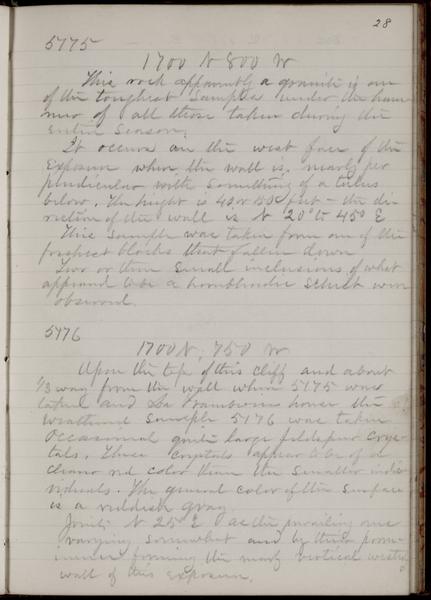 28
5175
1700 N 800 W
This rock apparently a granite is one
of the toughest samples under the ham-
mer of all those taken during the
entire season.
It occurs on the west face of the
exposure where the wall is nearly per-
pendicular with something of a talus
below. The height is 40 or 50 feet - the di-
rection of the wall is N 20° to 45° E
This sample was taken from one of the
freshest blocks that fallen down
Two or three small inclusions of what
appeared to be a hornblende schist were
observed.
5176
1700 N, 750 W
Upon the top of this cliff and about
1/3 way from the wall where 5175 was
taken and the
weathered sample 5176 was taken
Occasional quite large feldspar crys-
tals. These crystals appear to be of a
red color than the smaller indi-
viduals. The general color of the surface
is a reddish gray.
Joints N 25° E as the prevailing one
varying somewhat and by their prom-
inence forming the nearly vertical western
wall of this exposure.